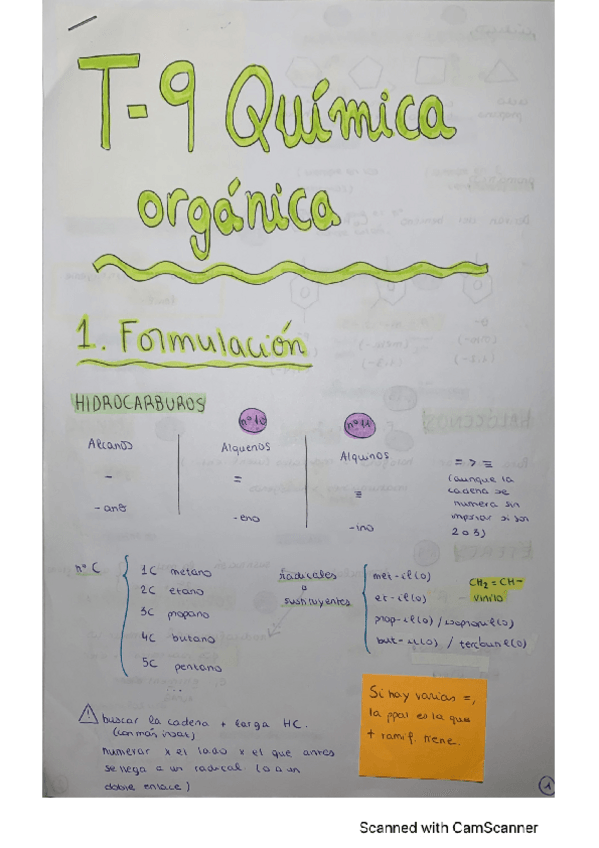 T-9 Química
orgánica
1. Formulación
HIDROCARBUROS
nº10
nº11
Alcanos
Alquenos
Alquinos
-
=
≡
-ano
-eno
-ino
= > ≡
(aunque la
cadena se
numera sin
importar si son
2 o 3)
nº C
1C metano
2C etano
3C propano
4C butano
5C pentano
...
radicales
o
sustituyentes
met-il(o)
et-il(o)
prop-il(o) / isopropil(o)
but-il(o) / tercbutil(o)
CH2=CH-
vinilo
buscar la cadena + larga HC.
(con más insat)
numerar x el lado x el que antes
se llega a un radical (o a un
doble enlace)
Si hay varias =,
la ppal es la que
+ ramif. tiene.
1
Scanned with CamScanner